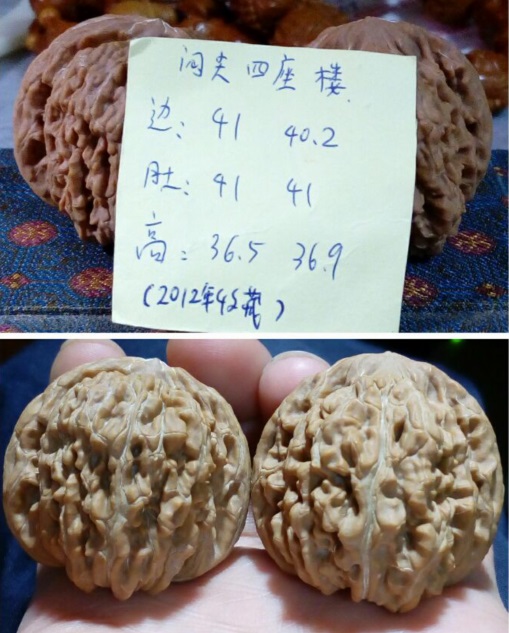 闷尖四座楼
边: 41 40.2
肚: 41 41
高: 36.5 36.9
(2012年收藏)